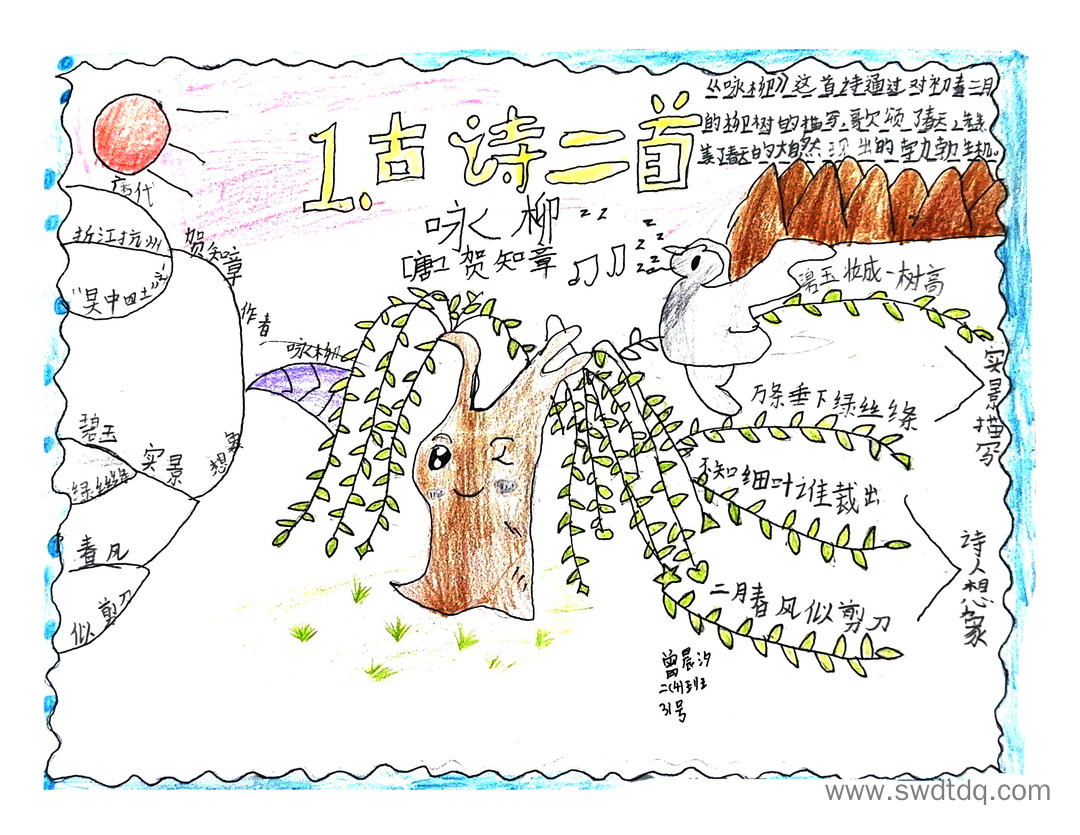 1.古诗二首
咏柳
[唐] 贺知章
《咏柳》这首诗通过对初春二月
的柳树的描写,歌颂了春天,
美了春天的大自然现出的勃勃生机。
z z
z z z z z
唐代
浙江杭州
"吴中四士"之一
贺知章
作者
咏柳
碧玉
绿丝绦
实景
春风
似剪刀
想象
碧玉妆成一树高
万条垂下绿丝绦
实景描写
不知细叶谁裁出
二月春风似剪刀
诗人想象
曾晨汐
二(4)班
31号
www.swdtdq.com